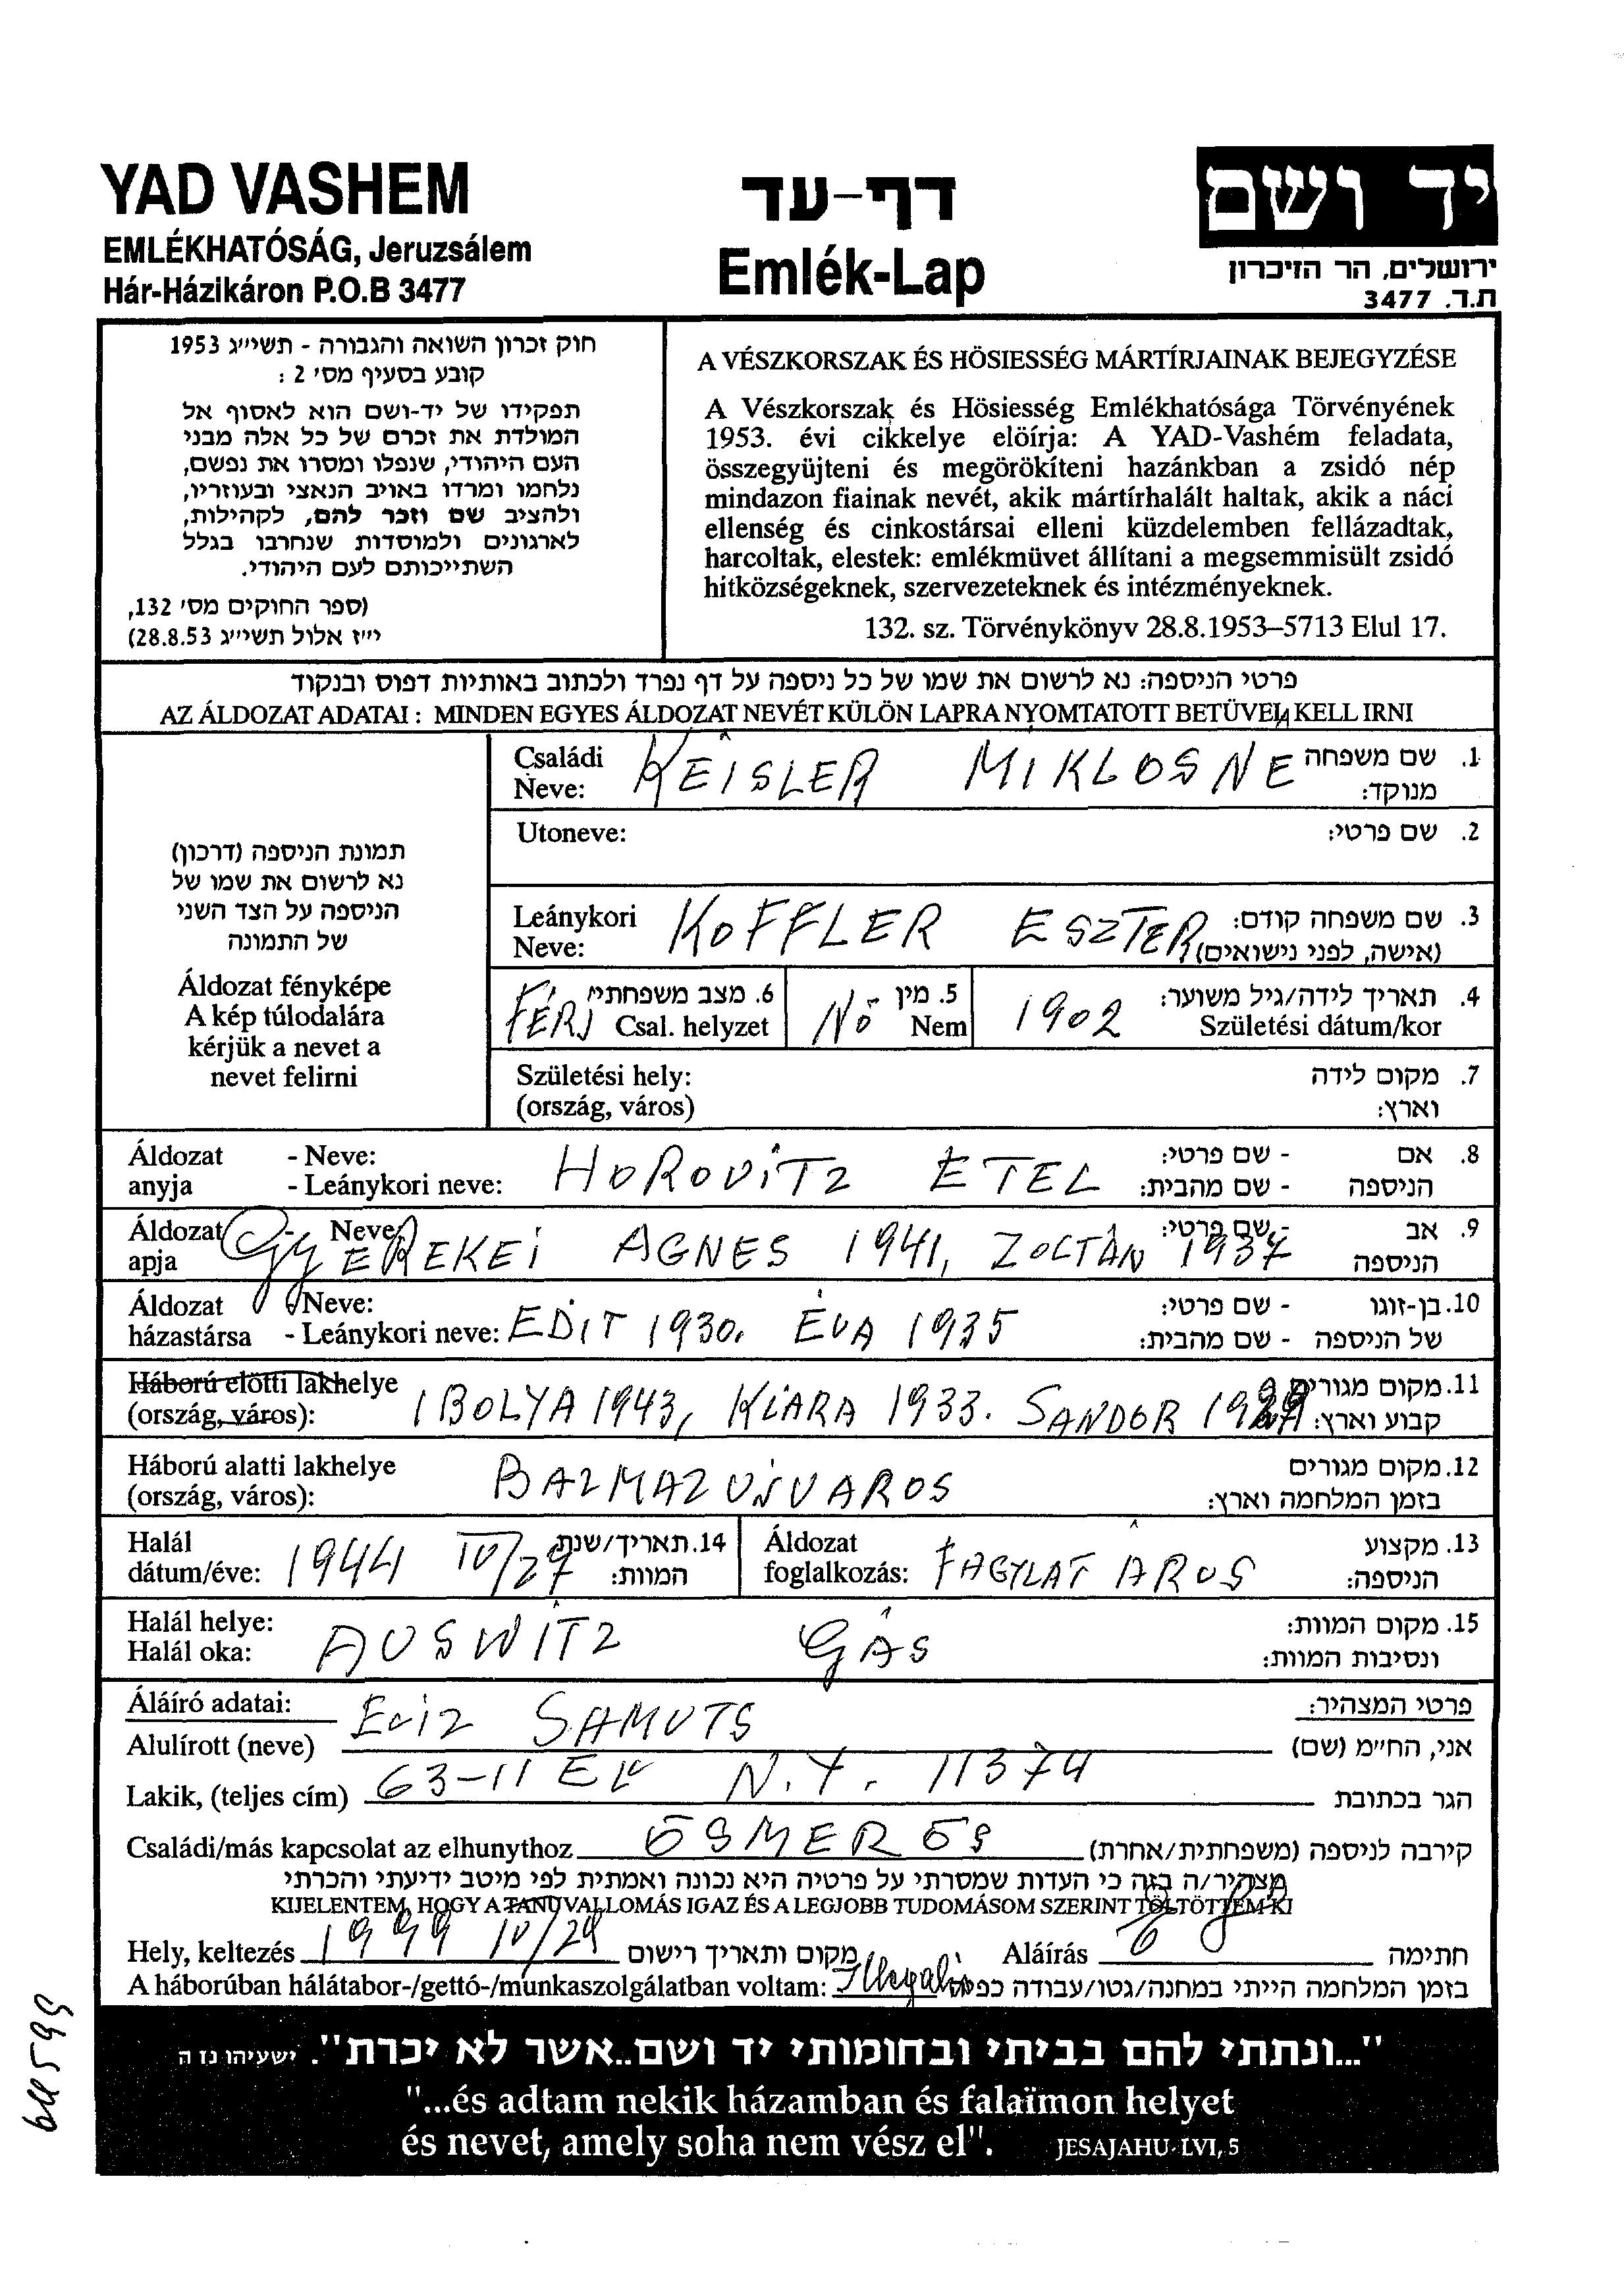 YAD VASHEM
EMLÉKHATÓSÁG, Jeruzsálem
Hár-Házikáron P.O.B 3477
דף-עד
Emlék-Lap
יד ושם
ירושלים, הר הזיכרון
ת.ד. 3477
חוק זכרון השואה והגבורה - תשי״ג 1953
קובע בסעיף מס׳ 2 :
תפקידו של יד-ושם הוא לאסוף אל
המולדת את זכרם של כל אלה מבני
העם היהודי, שנפלו ומסרו את נפשם,
נלחמו ומרדו באויב הנאצי ובעוזריו,
ולהציב שם וזכר להם, לקהילות,
לארגונים ולמוסדות שנחרבו בגלל
השתייכותם לעם היהודי.
(ספר החוקים מס׳ 132,
י״ז אלול תשי״ג 28.8.53)
A VÉSZKORSZAK ÉS HÖSIESSÉG MÁRTÍRJAINAK BEJEGYZÉSE
A Vészkorszak és Hösiesség Emlékhatósága Törvényének
1953. évi cikkelye elöírja: A YAD-Vashém feladata,
összegyüjteni és megörökíteni hazánkban a zsidó nép
mindazon fiainak nevét, akik mártírhalált haltak, akik a náci
ellenség és cinkostársai elleni küzdelemben fellázadtak,
harcoltak, elestek: emlékmüvet állítani a megsemmisült zsidó
hitközségeknek, szervezeteknek és intézményeknek.
132. sz. Törvénykönyv 28.8.1953–5713 Elul 17.
פרטי הניספה: נא לרשום את שמו של כל ניספה על דף נפרד ולכתוב באותיות דפוס ובנקוד
AZ ÁLDOZAT ADATAI : MINDEN EGYES ÁLDOZAT NEVÉT KÜLÖN LAPRA NYOMTATOTT BETÜVEL KELL IRNI
תמונת הניספה (דרכון)
נא לרשום את שמו של
הניספה על הצד השני
של התמונה
Áldozat fényképe
A kép túlodalára
kérjük a nevet a
nevet felirni
Családi Neve: KEISLER MIKLOSNE 1. שם משפחה מנוקד:
Utoneve: 2. שם פרטי:
Leánykori Neve: KOFFLER ESZTER 3. שם משפחה קודם: (אישה, לפני נישואים)
FÉRJ 6. מצב משפחתי Csal. helyzet NŐ 5. מין Nem 1902 4. תאריך לידה/גיל משוער: Születési dátum/kor
Születési hely: (ország, város) 7. מקום לידה וארץ:
Áldozat anyja - Neve: - Leánykori neve: HOROVITZ ETEL 8. אם הניספה - שם פרטי: - שם מהבית:
Áldozat apja - Neve: GYEREKEI AGNES 1941, ZOLTÁN 1937 9. אב הניספה - שם פרטי:
Áldozat házastársa - Neve: - Leánykori neve: EDIT 1930. ÉVA 1935 10. בן-זוגו של הניספה - שם פרטי: - שם מהבית:
Háború elötti lakhelye (ország, város): IBOLYA 1943, KLARA 1933. SANDOR 11. מקום מגורים קבוע וארץ:
Háború alatti lakhelye (ország, város): BALMAZUJVAROS 12. מקום מגורים בזמן המלחמה וארץ:
Halál dátum/éve: 1944 IV/27 14. תאריך/שנת המוות: Áldozat foglalkozás: FAGYLAT ÁRUS 13. מקצוע הניספה:
Halál helye: Halál oka: AUSWITZ GÁS 15. מקום המוות: ונסיבות המוות:
Áláíró adatai: פרטי המצהיר:
Alulírott (neve) SAMUTS אני, הח״מ (שם)
Lakik, (teljes cím) 63-11 N.Y. 11374 הגר בכתובת
Családi/más kapcsolat az elhunythoz ÖSMERŐS קירבה לניספה (משפחתית/אחרת)
מצהיר/ה בזה כי העדות שמסרתי על פרטיה היא נכונה ואמתית לפי מיטב ידיעתי והכרתי
KIJELENTEM, HOGY A TANUVALLOMÁS IGAZ ÉS A LEGJOBB TUDOMÁSOM SZERINT TÖLTÖTTEM KI
Hely, keltezés 1999 IV/29 מקום ותאריך רישום Aláírás חתימה
A háborúban hálátabor-/gettó-/munkaszolgálatban voltam: בזמן המלחמה הייתי במחנה/גטו/עבודה כפיה
"...ונתתי להם בביתי ובחומותי יד ושם..אשר לא יכרת". ישעיהו נז ה
"...és adtam nekik házamban és falaïmon helyet
és nevet, amely soha nem vész el". JESAJAHU LVI, 5